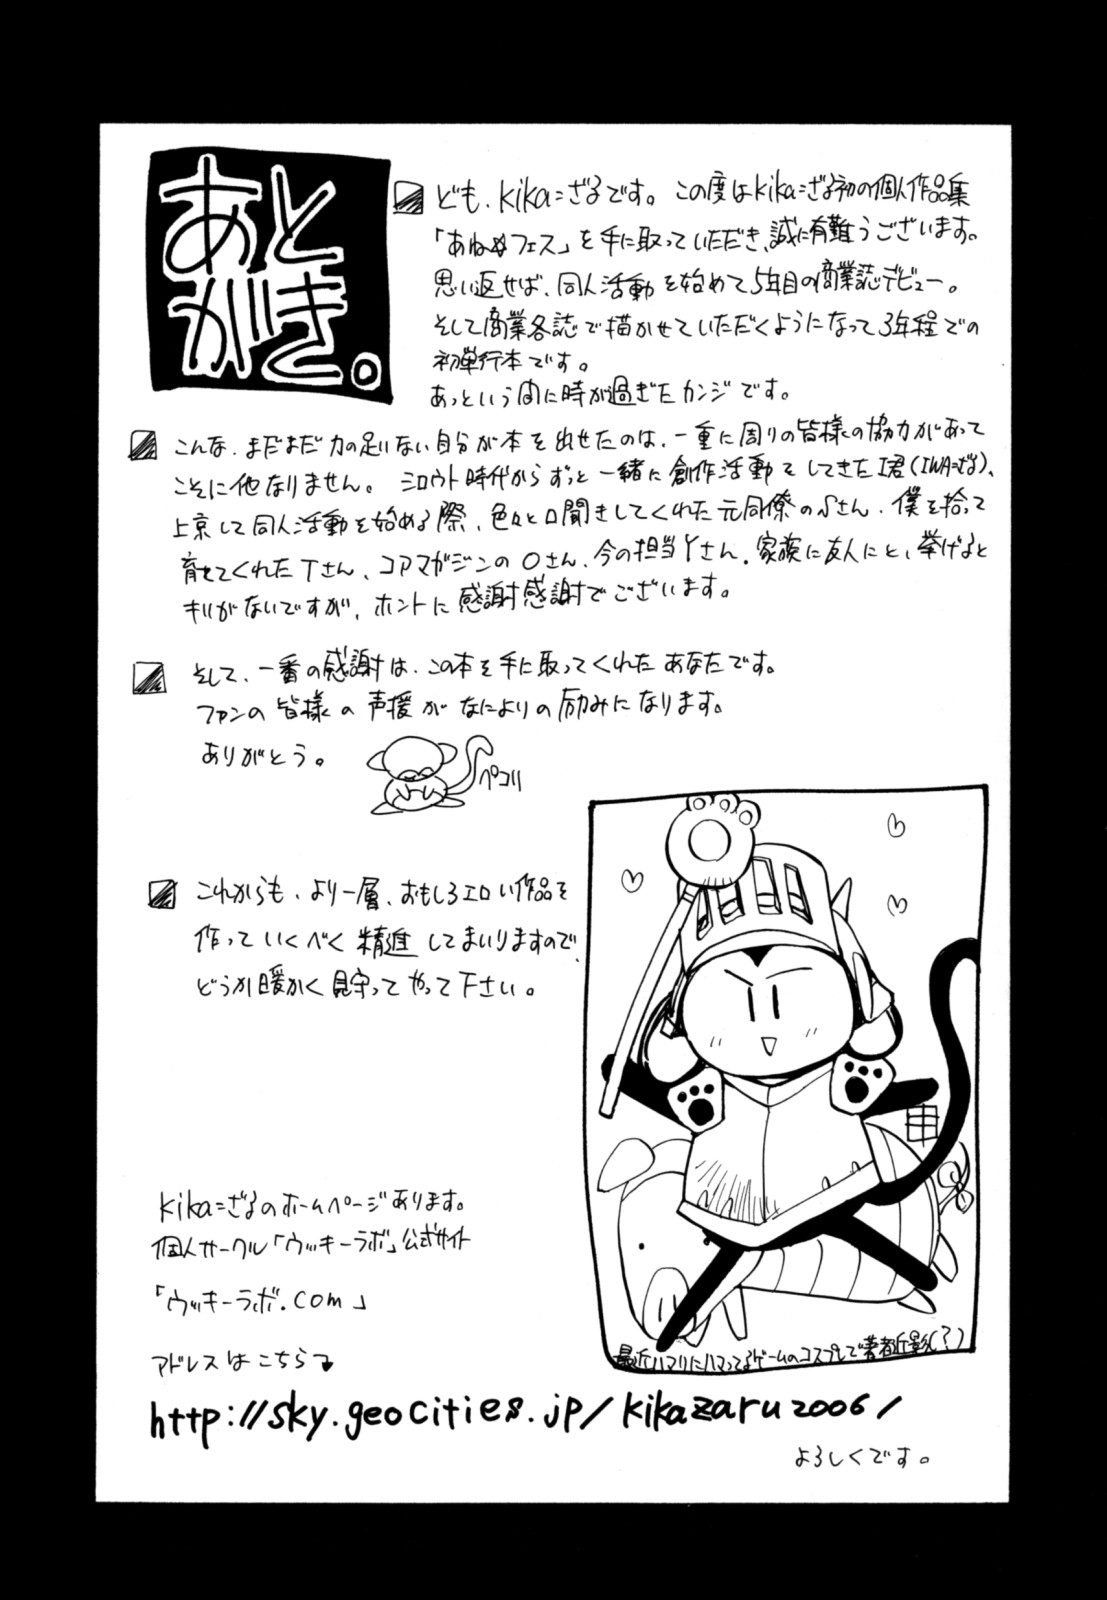 あと
がき。
ども、kika=ざるです。この度はkika=ざる初の個人作品集
「あねめフェス」を手に取っていただき、誠に有難うございます。
思い返せば、同人活動を始めて5年目の商業誌デビュー。
そして商業各誌で描かせていただくようになって3年程での
初単行本です。
あっという間に時が過ぎたカンジです。
こんな、まだまだ力の足りない自分が本を出せたのは、一重に周りの皆様の協力があって
こそに他なりません。シロウト時代からずっと一緒に創作活動をしてきたI君(IWA=ざる)、
上京して同人活動を始める際、色々と口聞きしてくれた元同僚のSさん、僕を拾って
育ててくれたTさん、コアマガジンのOさん、今の担当Yさん、家族に友人にと、挙げると
キリがないですが、ホントに感謝感謝でございます。
そして、一番の感謝は、この本を手に取ってくれたあなたです。
ファンの皆様の声援がなによりの励みになります。
ありがとう。
ペコリ
これからも、より一層、おもしろエロい作品を
作っていくべく精進してまいりますので、
どうか暖かく見守ってやって下さい。
最近ハマりにハマってるゲームのコスプレで著者近影(?)
kika=ざるのホームページあります。
個人サークル「ウッキーラボ」公式サイト
「ウッキーラボ.com」
アドレスはこちら
http://sky.geocities.jp/kikazaru2006/
よろしくです。